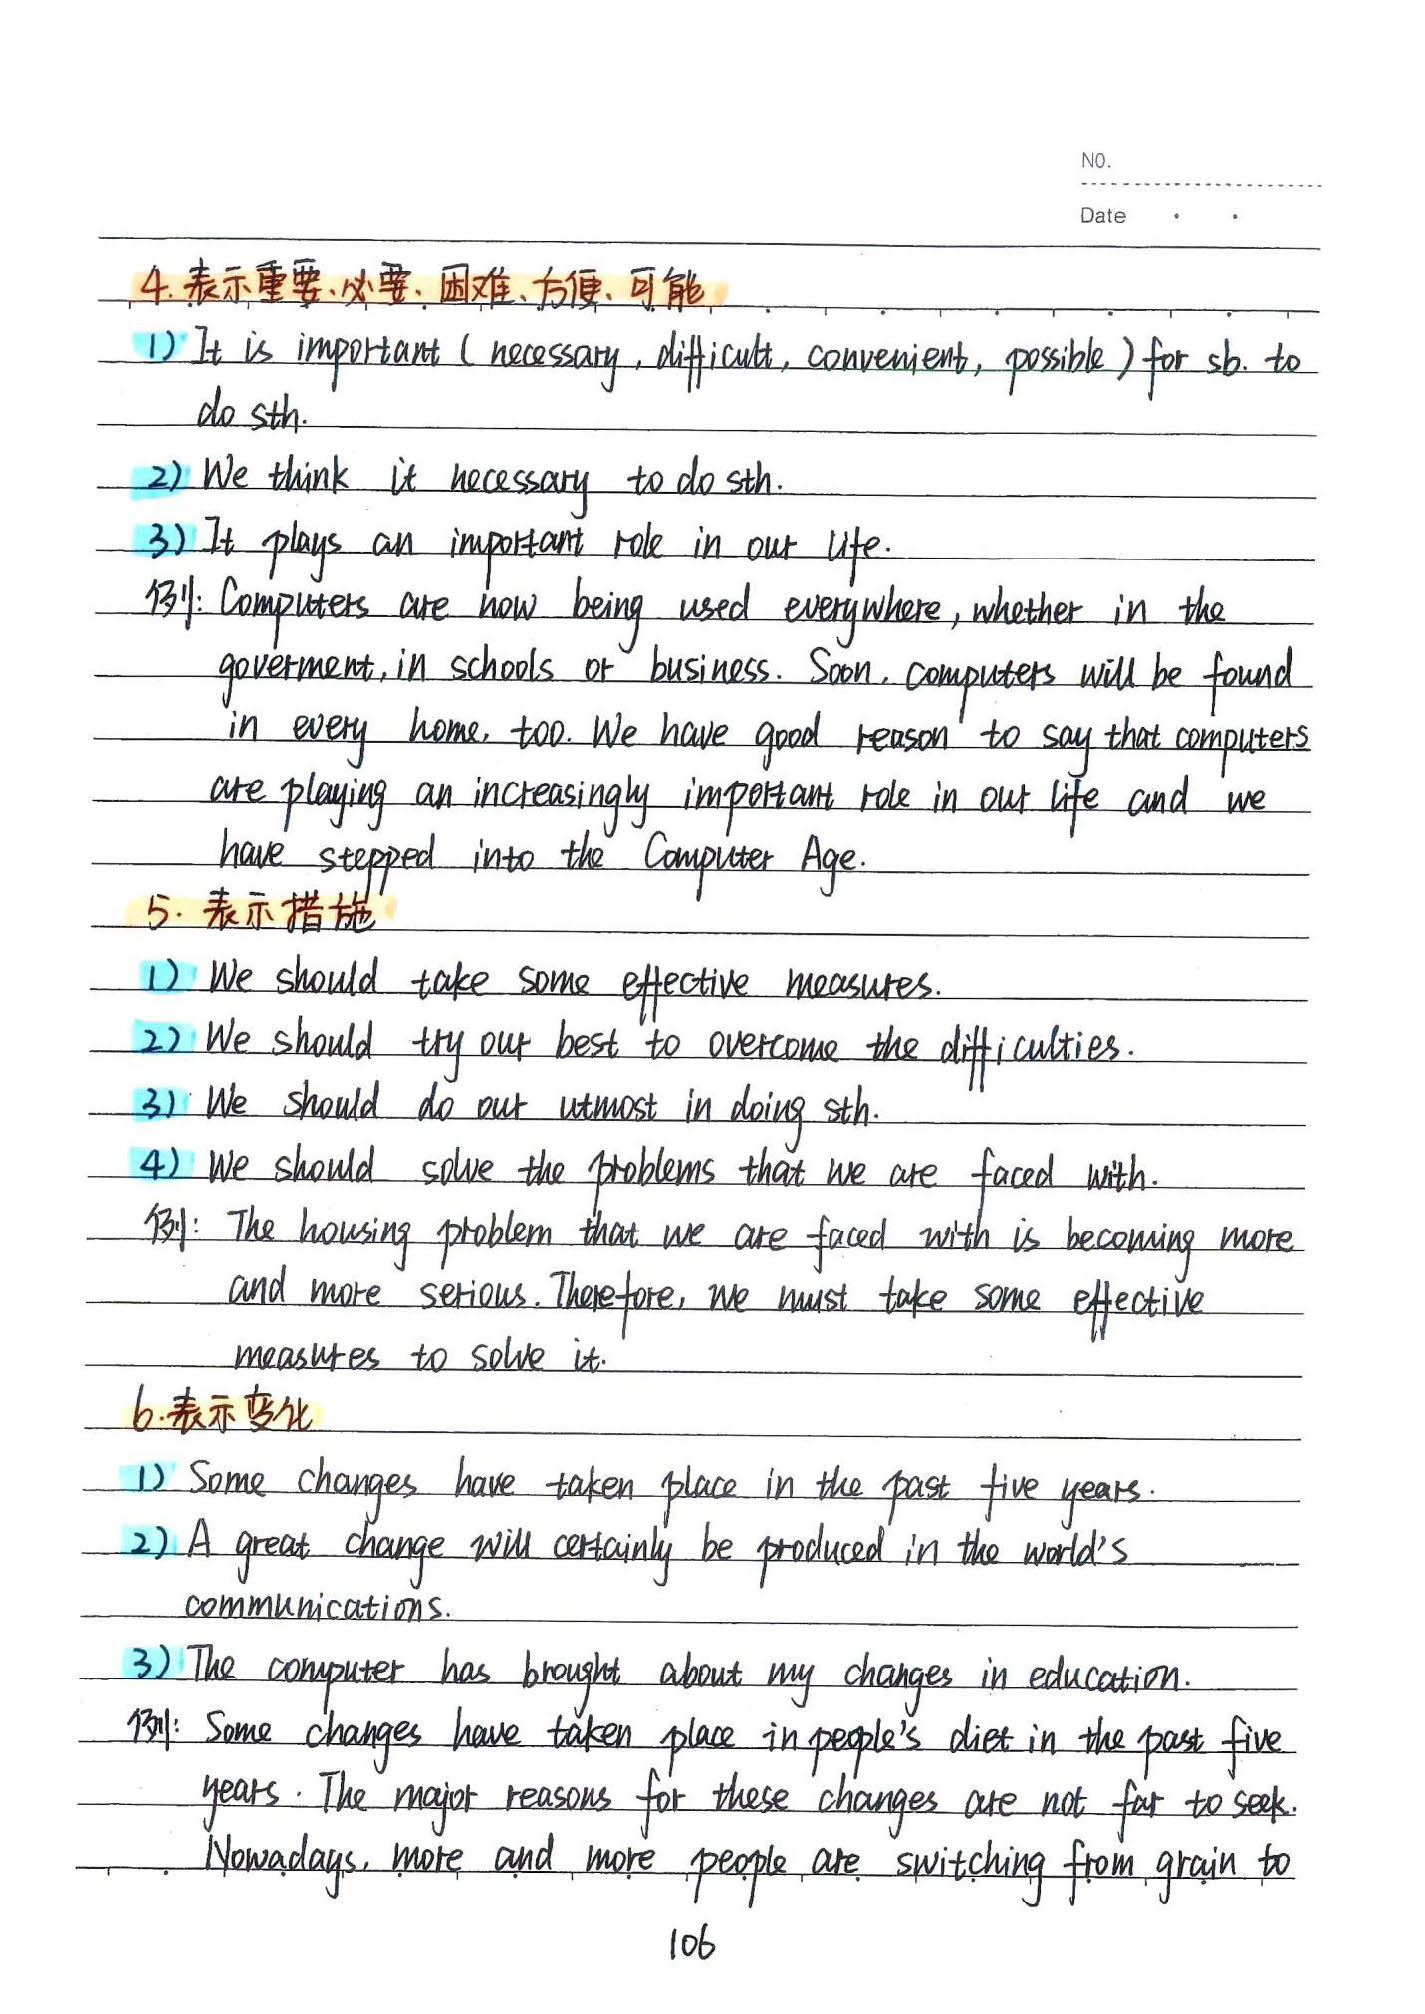 NO.
Date
4. 表示重要、必要、困难、方便、可能
1) It is important ( necessary, difficult, convenient, possible ) for sb. to
do sth.
2) We think it necessary to do sth.
3) It plays an important role in our life.
例: Computers are now being used everywhere, whether in the
goverment, in schools or business. Soon, computers will be found
in every home, too. We have good reason to say that computers
are playing an increasingly important role in our life and we
have stepped into the Computer Age.
5. 表示措施
1) We should take some effective measures.
2) We should try our best to overcome the difficulties.
3) We should do our utmost in doing sth.
4) We should solve the problems that we are faced with.
例: The housing problem that we are faced with is becoming more
and more serious. Therefore, we must take some effective
measures to solve it.
6. 表示变化
1) Some changes have taken place in the past five years.
2) A great change will certainly be produced in the world's
communications.
3) The computer has brought about my changes in education.
例: Some changes have taken place in people's diet in the past five
years. The major reasons for these changes are not far to seek.
Nowadays, more and more people are switching from grain to
106